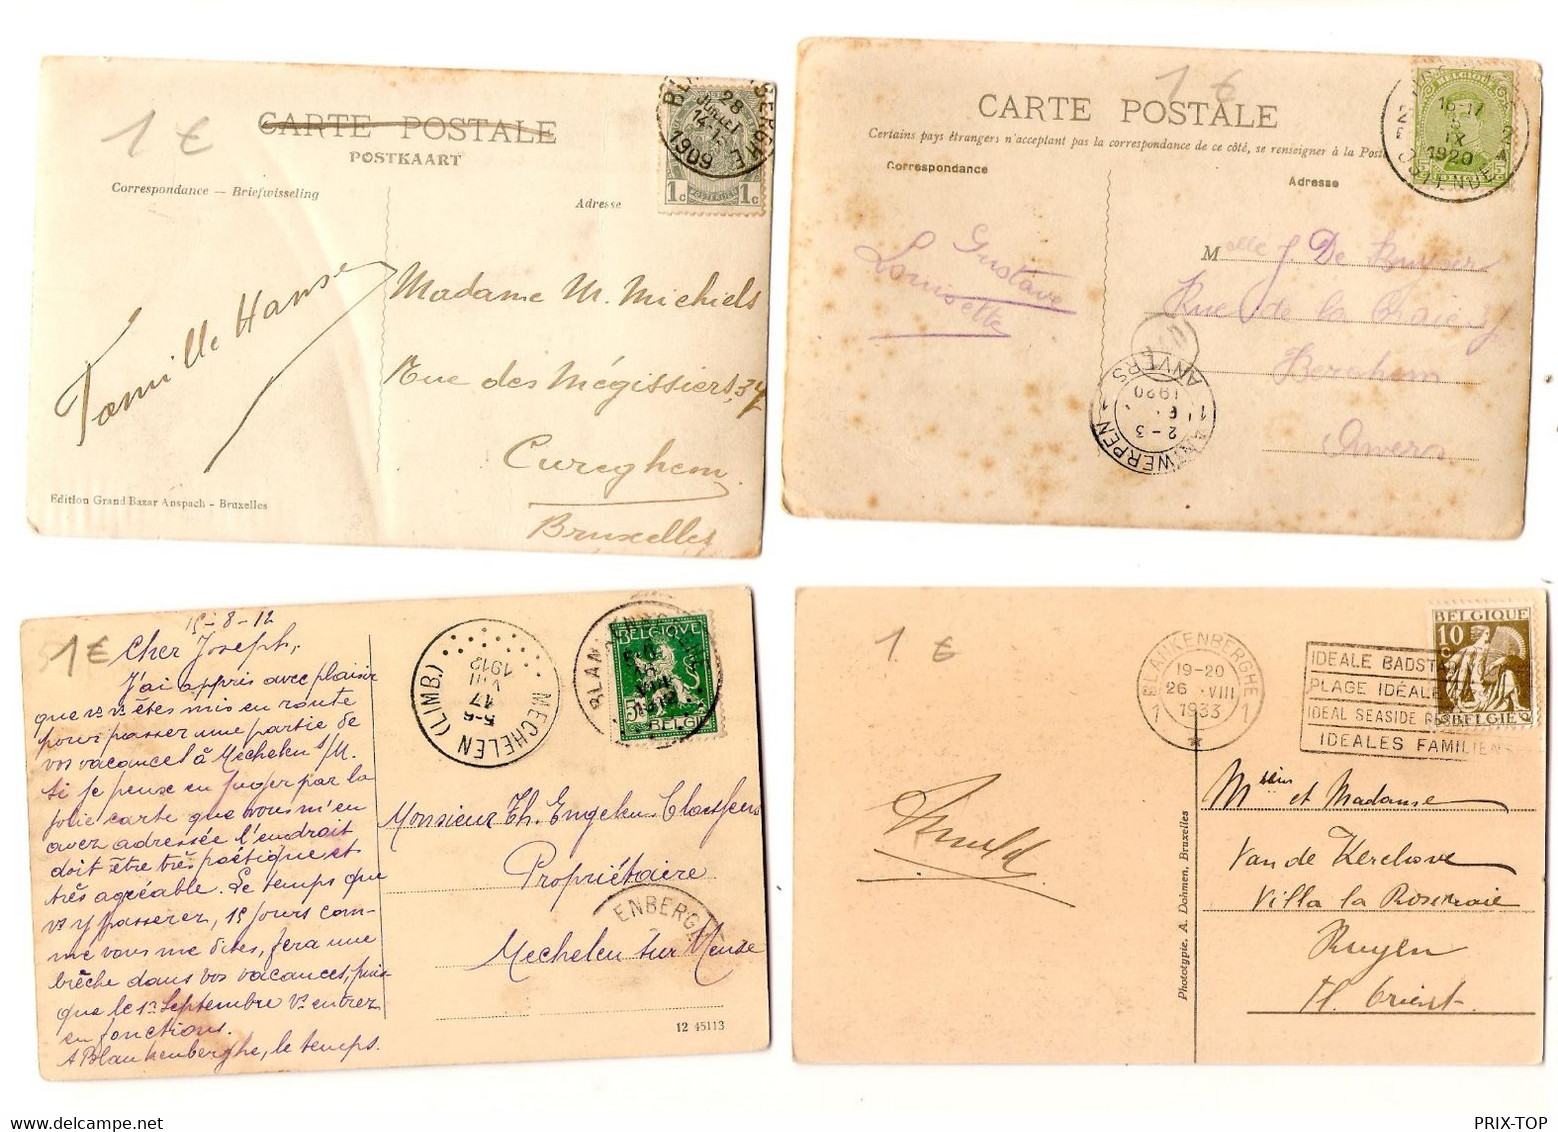 1 €
CARTE POSTALE
POSTKAART
Correspondance — Briefwisseling
Adresse
28
JUILLET
1909
1c 1c
Famille Hanse
Madame M. Michiels
Rue des Mégissiers, 37
Cureghem
Bruxelles
Edition Grand Bazar Anspach - Bruxelles
1 €
CARTE POSTALE
Certains pays étrangers n'acceptant pas la correspondance de ce côté, se renseigner à la Poste
Correspondance
Adresse
BELGIQUE
16-17
IX
1920
OSTENDE
Gustave
Louisette
Melle J. De
Rue de la
Berchem
Anvers
ANTWERPEN 1
2-3
1920
1 ANVERS
1 €
15-8-12
Cher Joseph,
J'ai appris avec plaisir
que vs vs êtes mis en route
pour passer une partie de
vos vacances à Mechelen s/M.
Si je peux en juger par la
jolie carte que vous m'en
avez adressée l'endroit
doit être très poétique et
très agréable. Le temps que
vs y passerez, 15 jours com-
me vous me dites, fera une
brêche dans vos vacances, puis-
que le 1r Septembre vs entrez
en fonctions.
A Blankenberghe, le temps.
MECHELEN (LIMB.)
5-6
17
VIII
1912
BELGIQUE
5 5
BELGIË
Monsieur Th. Engelen-Claessens
Propriétaire
Mechelen sur Meuse
ENBERGH
12 45113
1 €
BLANKENBERGHE
19-20
26 VIII
1933
1 1
IDEALE BADST
PLAGE IDÉALE
IDEAL SEASIDE RES
IDEALES FAMILIEN
BELGIQUE
10
c
BELGIË
Arnold
Msieur et Madame
Van de Kerchove
Villa la Roseraie
Ruyen
Fl. Orient.
Phototypie. A. Dohmen, Bruxelles
PRIX-TOP